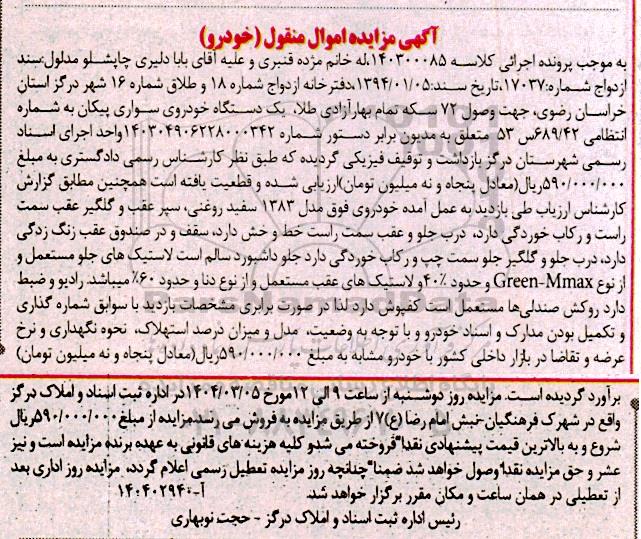 آگهی مزایده اموال منقول (خودرو)
به موجب پرونده اجرائی کلاسه ۱۴۰۳۰۰۰۸۵،له خانم مژده قنبری و علیه آقای بابا دلیری چاپشلو مدلول:سند
ازدواج شماره:۱۷۰۳۷،تاریخ سند:۱۳۹۴/۰۱/۰۵،دفترخانه ازدواج شماره ۱۸ و طلاق شماره ۱۶ شهر درگز استان
خراسان رضوی، جهت وصول ۷۲ سکه تمام بهارآزادی طلا، یک دستگاه خودروی سواری پیکان به شماره
انتظامی ۶۸۹/۴۲س ۵۳ متعلق به مدیون برابر دستور شماره ۱۴۰۳۰۴۹۰۶۲۲۸۰۰۰۳۴۲واحد اجرای اسناد
رسمی شهرستان درگز بازداشت و توقیف فیزیکی گردیده که طبق نظر کارشناس رسمی دادگستری به مبلغ
۵۹۰/۰۰۰/۰۰۰ریال(معادل پنجاه و نه میلیون تومان)ارزیابی شده و قطعیت یافته است همچنین مطابق گزارش
کارشناس ارزیاب طی بازدید به عمل آمده خودروی فوق مدل ۱۳۸۳ سفید روغنی، سپر عقب و گلگیر عقب سمت
راست و رکاب خوردگی دارد، درب جلو و عقب سمت راست خط و خش دارد، سقف و در صندوق عقب زنگ زدگی
دارد، درب جلو و گلگیر جلو سمت چپ و رکاب خوردگی دارد جلو داشبورد سالم است لاستیک های جلو مستعمل و
از نوع Green-Mmax و حدود ۴۰٪و لاستیک های عقب مستعمل و از نوع دنا و حدود ۶۰٪میباشد. رادیو و ضبط
دارد روکش صندلی‌ها مستعمل است کفپوش دارد لذا در صورت برابری مشخصات بازدید با سوابق شماره گذاری
و تکمیل بودن مدارک و اسناد خودرو و با توجه به وضعیت، مدل و میزان درصد استهلاک، نحوه نگهداری و نرخ
عرضه و تقاضا در بازار داخلی کشور با خودرو مشابه به مبلغ ۵۹۰/۰۰۰/۰۰۰ریال(معادل پنجاه و نه میلیون تومان)
برآورد گردیده است. مزایده روز دوشنبه از ساعت ۹ الی ۱۲مورخ ۱۴۰۴/۰۳/۰۵در اداره ثبت اسناد و املاک درگز
واقع در شهرک فرهنگیان-نبش امام رضا (ع)۷ از طریق مزایده به فروش می رسد.مزایده از مبلغ ۵۹۰/۰۰۰/۰۰۰ریال
شروع و به بالاترین قیمت پیشنهادی نقدا"فروخته می شدو کلیه هزینه های قانونی به عهده برنده مزایده است و نیز
عشر و حق مزایده نقدا"وصول خواهد شد ضمنا"چنانچه روز مزایده تعطیل رسمی اعلام گردد، مزایده روز اداری بعد
از تعطیلی در همان ساعت و مکان مقرر برگزار خواهد شد. آ-۱۴۰۴۰۲۹۴
رئیس اداره ثبت اسناد و املاک درگز - حجت نوبهاری